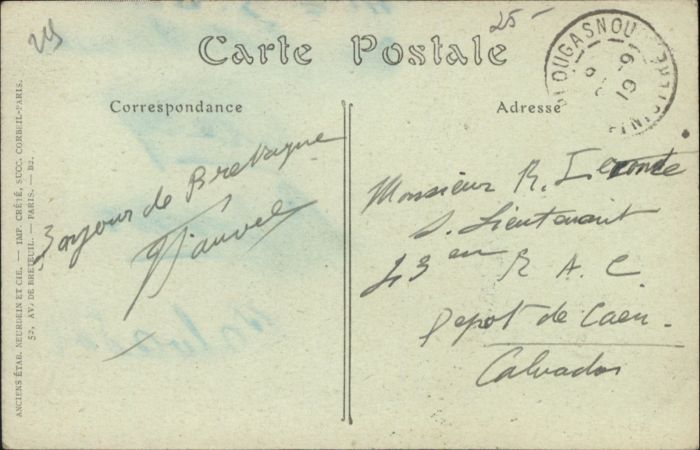 25-
Carte Postale
PLOUGASNOU
FINISTERE
Correspondance
Adresse
Bonjour de Bretagne
Fauvel
Monsieur R. Leconte
S. Lieutenant
43 em R A C
Depot de Caen.
Calvados
ANCIENS ÉTAB. NEURDEIN ET CIE. — IMP. CRÉTÉ, SUCC. CORBEIL-PARIS.
52, AV. DE BRETEUIL. — PARIS. — B2.